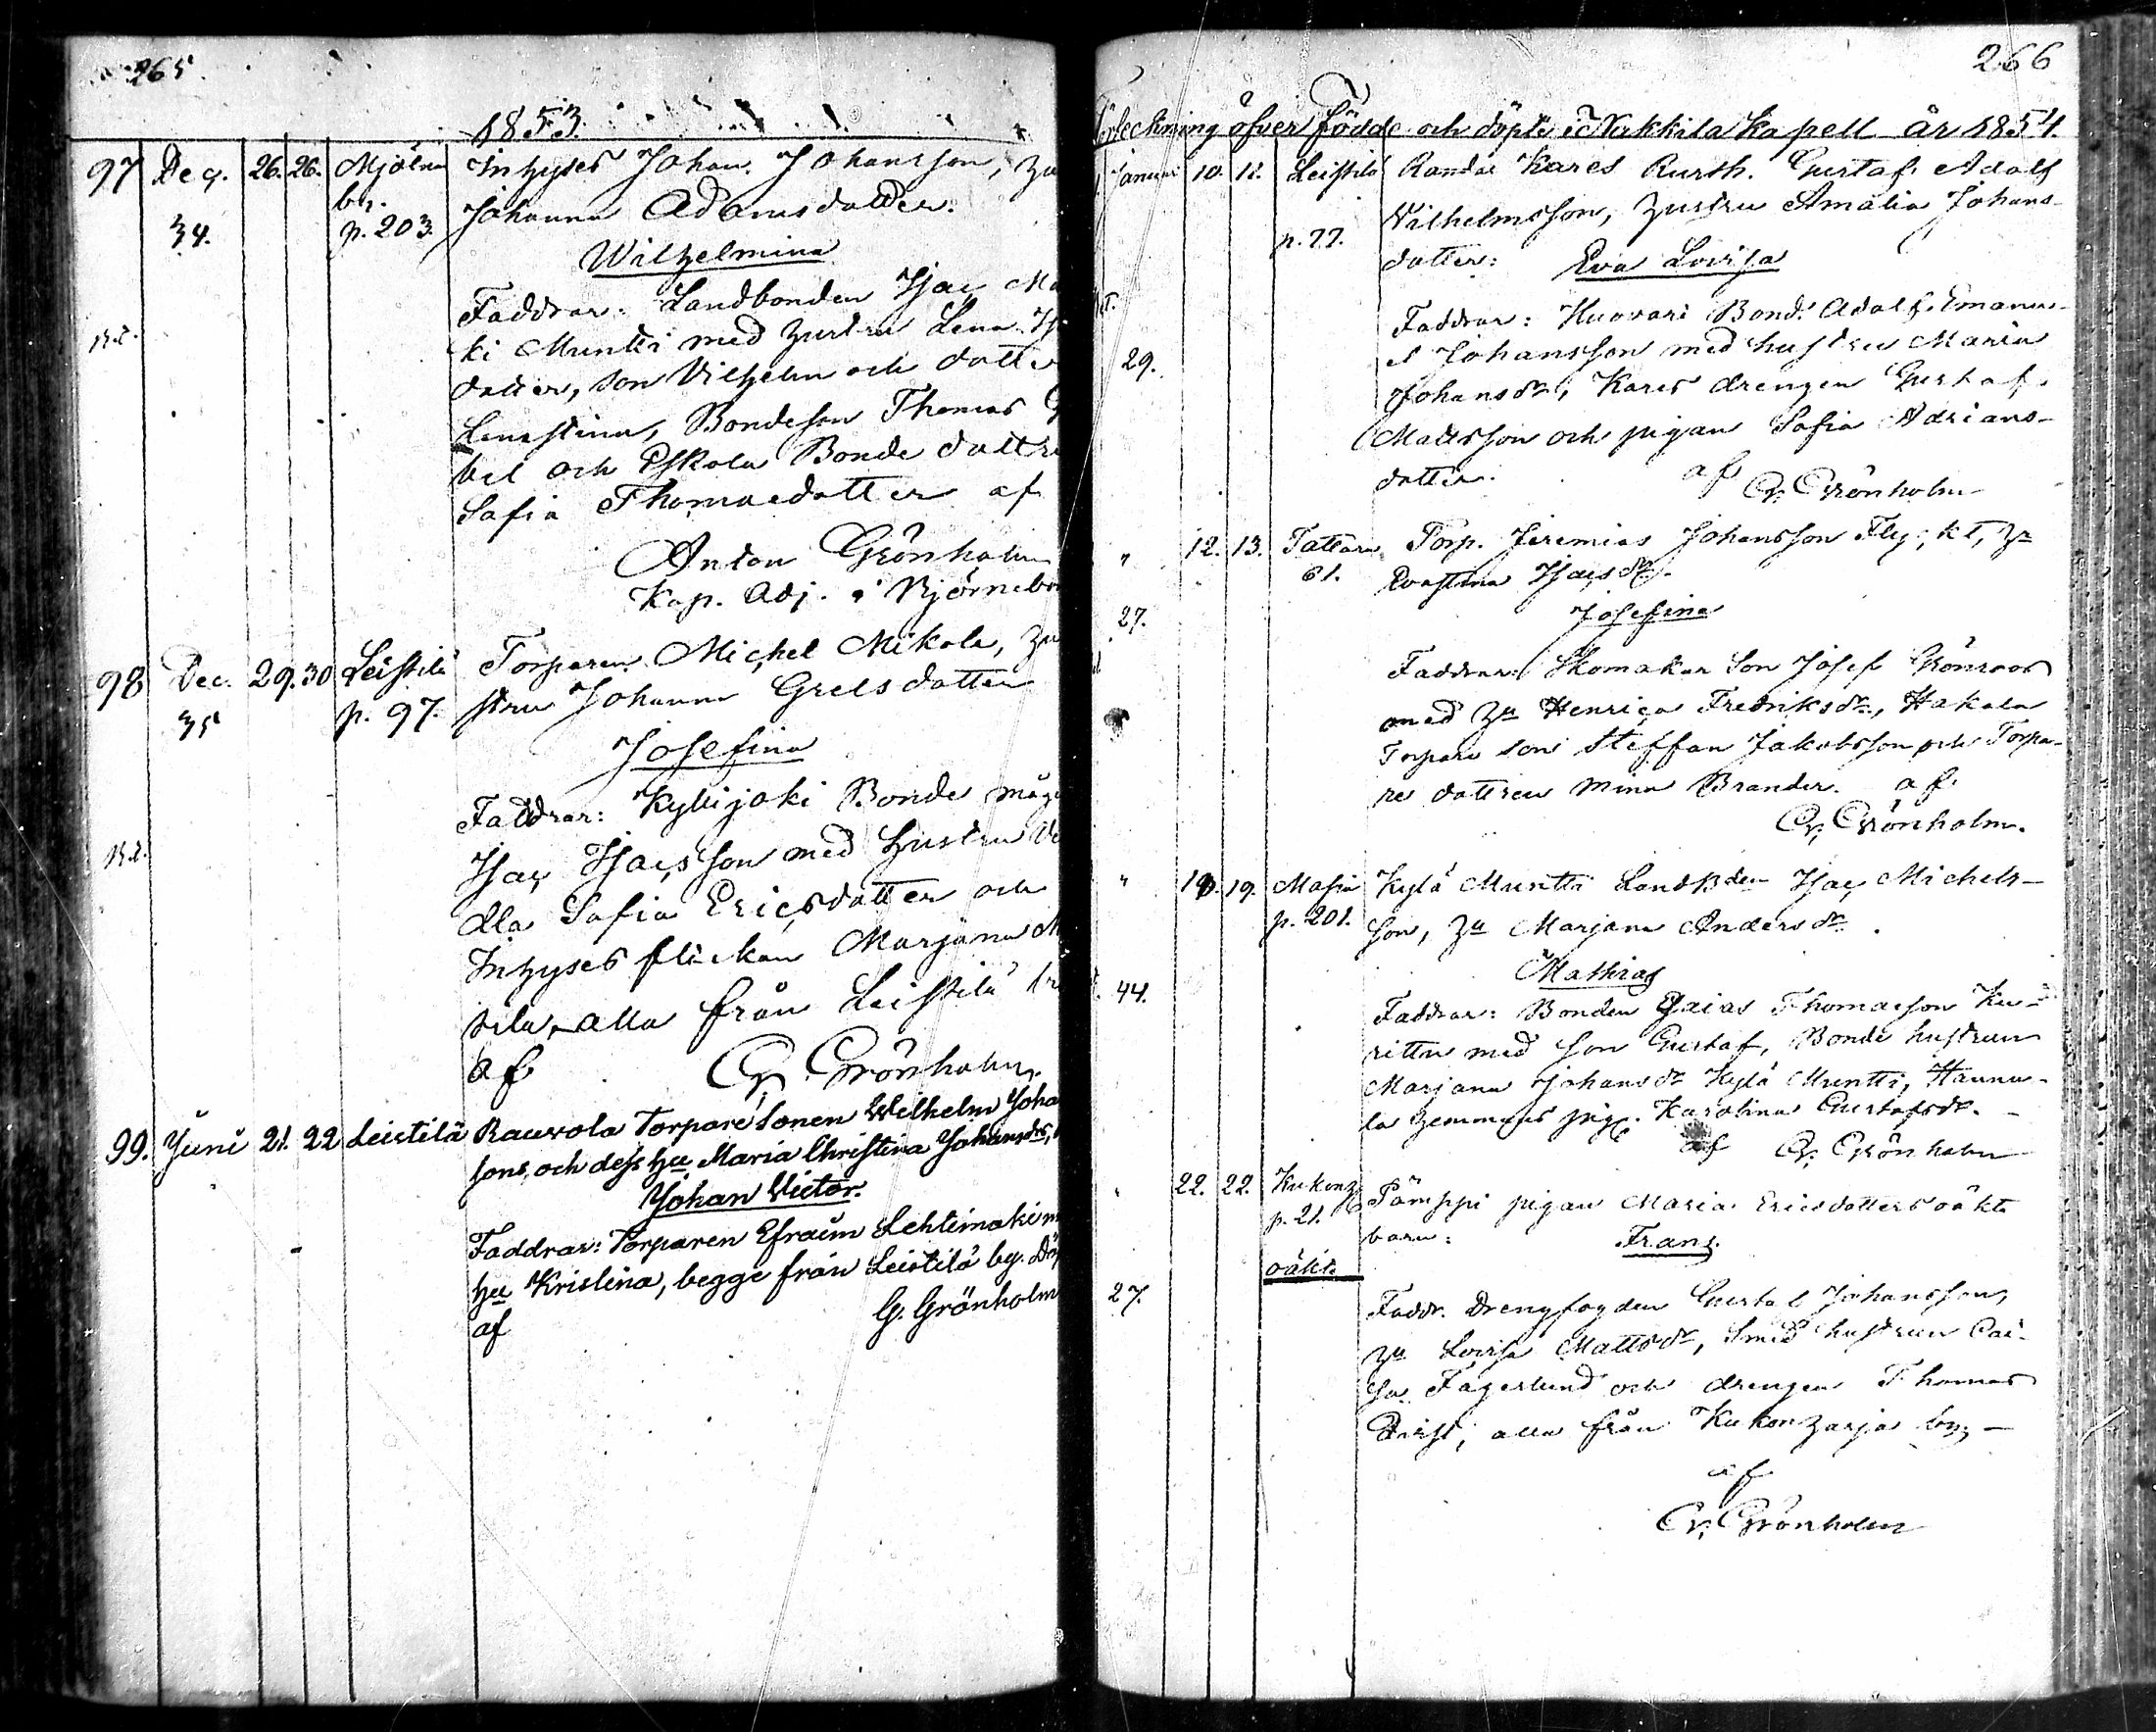 265
1853.
97 Dec. 26. 26. Mjölna Inhyses Johan Johansson, hu
by. Johanna Adamsdotter.
34. p. 203.
Wilhelmina
Faddrar: Landbonden Isac Ma
ki Muntti med hustru Lena Is
dotter, son Vilhelm och dotte
Lenastina, Bondeson Thomas G
vel och Eskola Bonde dottre
Safia Thomasdotter af
Anton Grönholm
Kap. Adj. i Björnebor
98 Dec. 29. 30 Leistilä Torparen Michel Mikola, hu
35 p. 97. stru Johanna Grelsdotter
Josefina
Faddrar: Kylijoki Bonde måge
Isac Isacsson med hustru Ve
dla Safia Ericsdotter och
Inhyses flickan Marjana M
sila, alla från Leistilä
af Gr. Grönholm.
99. Juni 21. 22 Leistilä Rauvola Torpare Sonen Wilhelm Joha
sons, och dess hu Maria Christina Johansdr,
Johan Victor.
Faddrar: Torparen Efraim Lehtimäki m
hu Kristina, begge från Leistilä by. Döp
af G. Grönholm
266
Förteckning öfver Födde och döpte i Nakkila Kapell år 1854.
Januari 10. 11. Leistilä Randar Kares Rusth. Gustaf Adolf
Vilhelmsson, hustru Amalia Johans-
p. 77. dotter: Eva Lovisa
Faddrar: Huovari Bond. Adolf Emanu-
29. el Johansson med hustru Maria
Johansdr, Kares drengen Gustaf
Mattsson och pigan Safia Adrians-
dotter. af Gr. Grönholm
" 12. 13. Tattara Torp. Jeremias Johansson Flyckt, hu
61. Evastina Isacsdr.
27. Josefina
Faddrar: Skomakar Son Josef Grönroos
med hu Henrica Fredriksdr, Hakala
Torpare son Steffan Jakobsson och Torpa-
re dottren Mina Brander. af
Gr. Grönholm.
" 18. 19. Masia Kylä Muntti Landbden Isac Michels-
p. 201. son, hu Marjana Andersdr.
Mathias
44. Faddrar: Bonden Esaias Thomasson Ku-
rittu med son Gustaf, Bonde hustrun
Marjana Johansdr Kylä Muntti, Hannu-
la hemmans pig. Karolina Gustafsdr.
af Gr. Grönholm
" 22. 22. Kukonh Tamppi pigan Maria Ericsdotters oäkta
p. 21. barn: Frans.
oäkt.
27. Faddr. Drengfogden Gustaf Johansson,
hu Lovisa Mattsdr, Smed hustrun Cai-
sa Fagerlund och drengen Thomas
alla från Kukonharja by
af
Gr. Grönholm